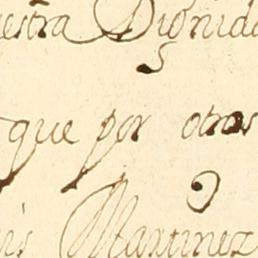 uestra Dignida
que por otras
is Martinez